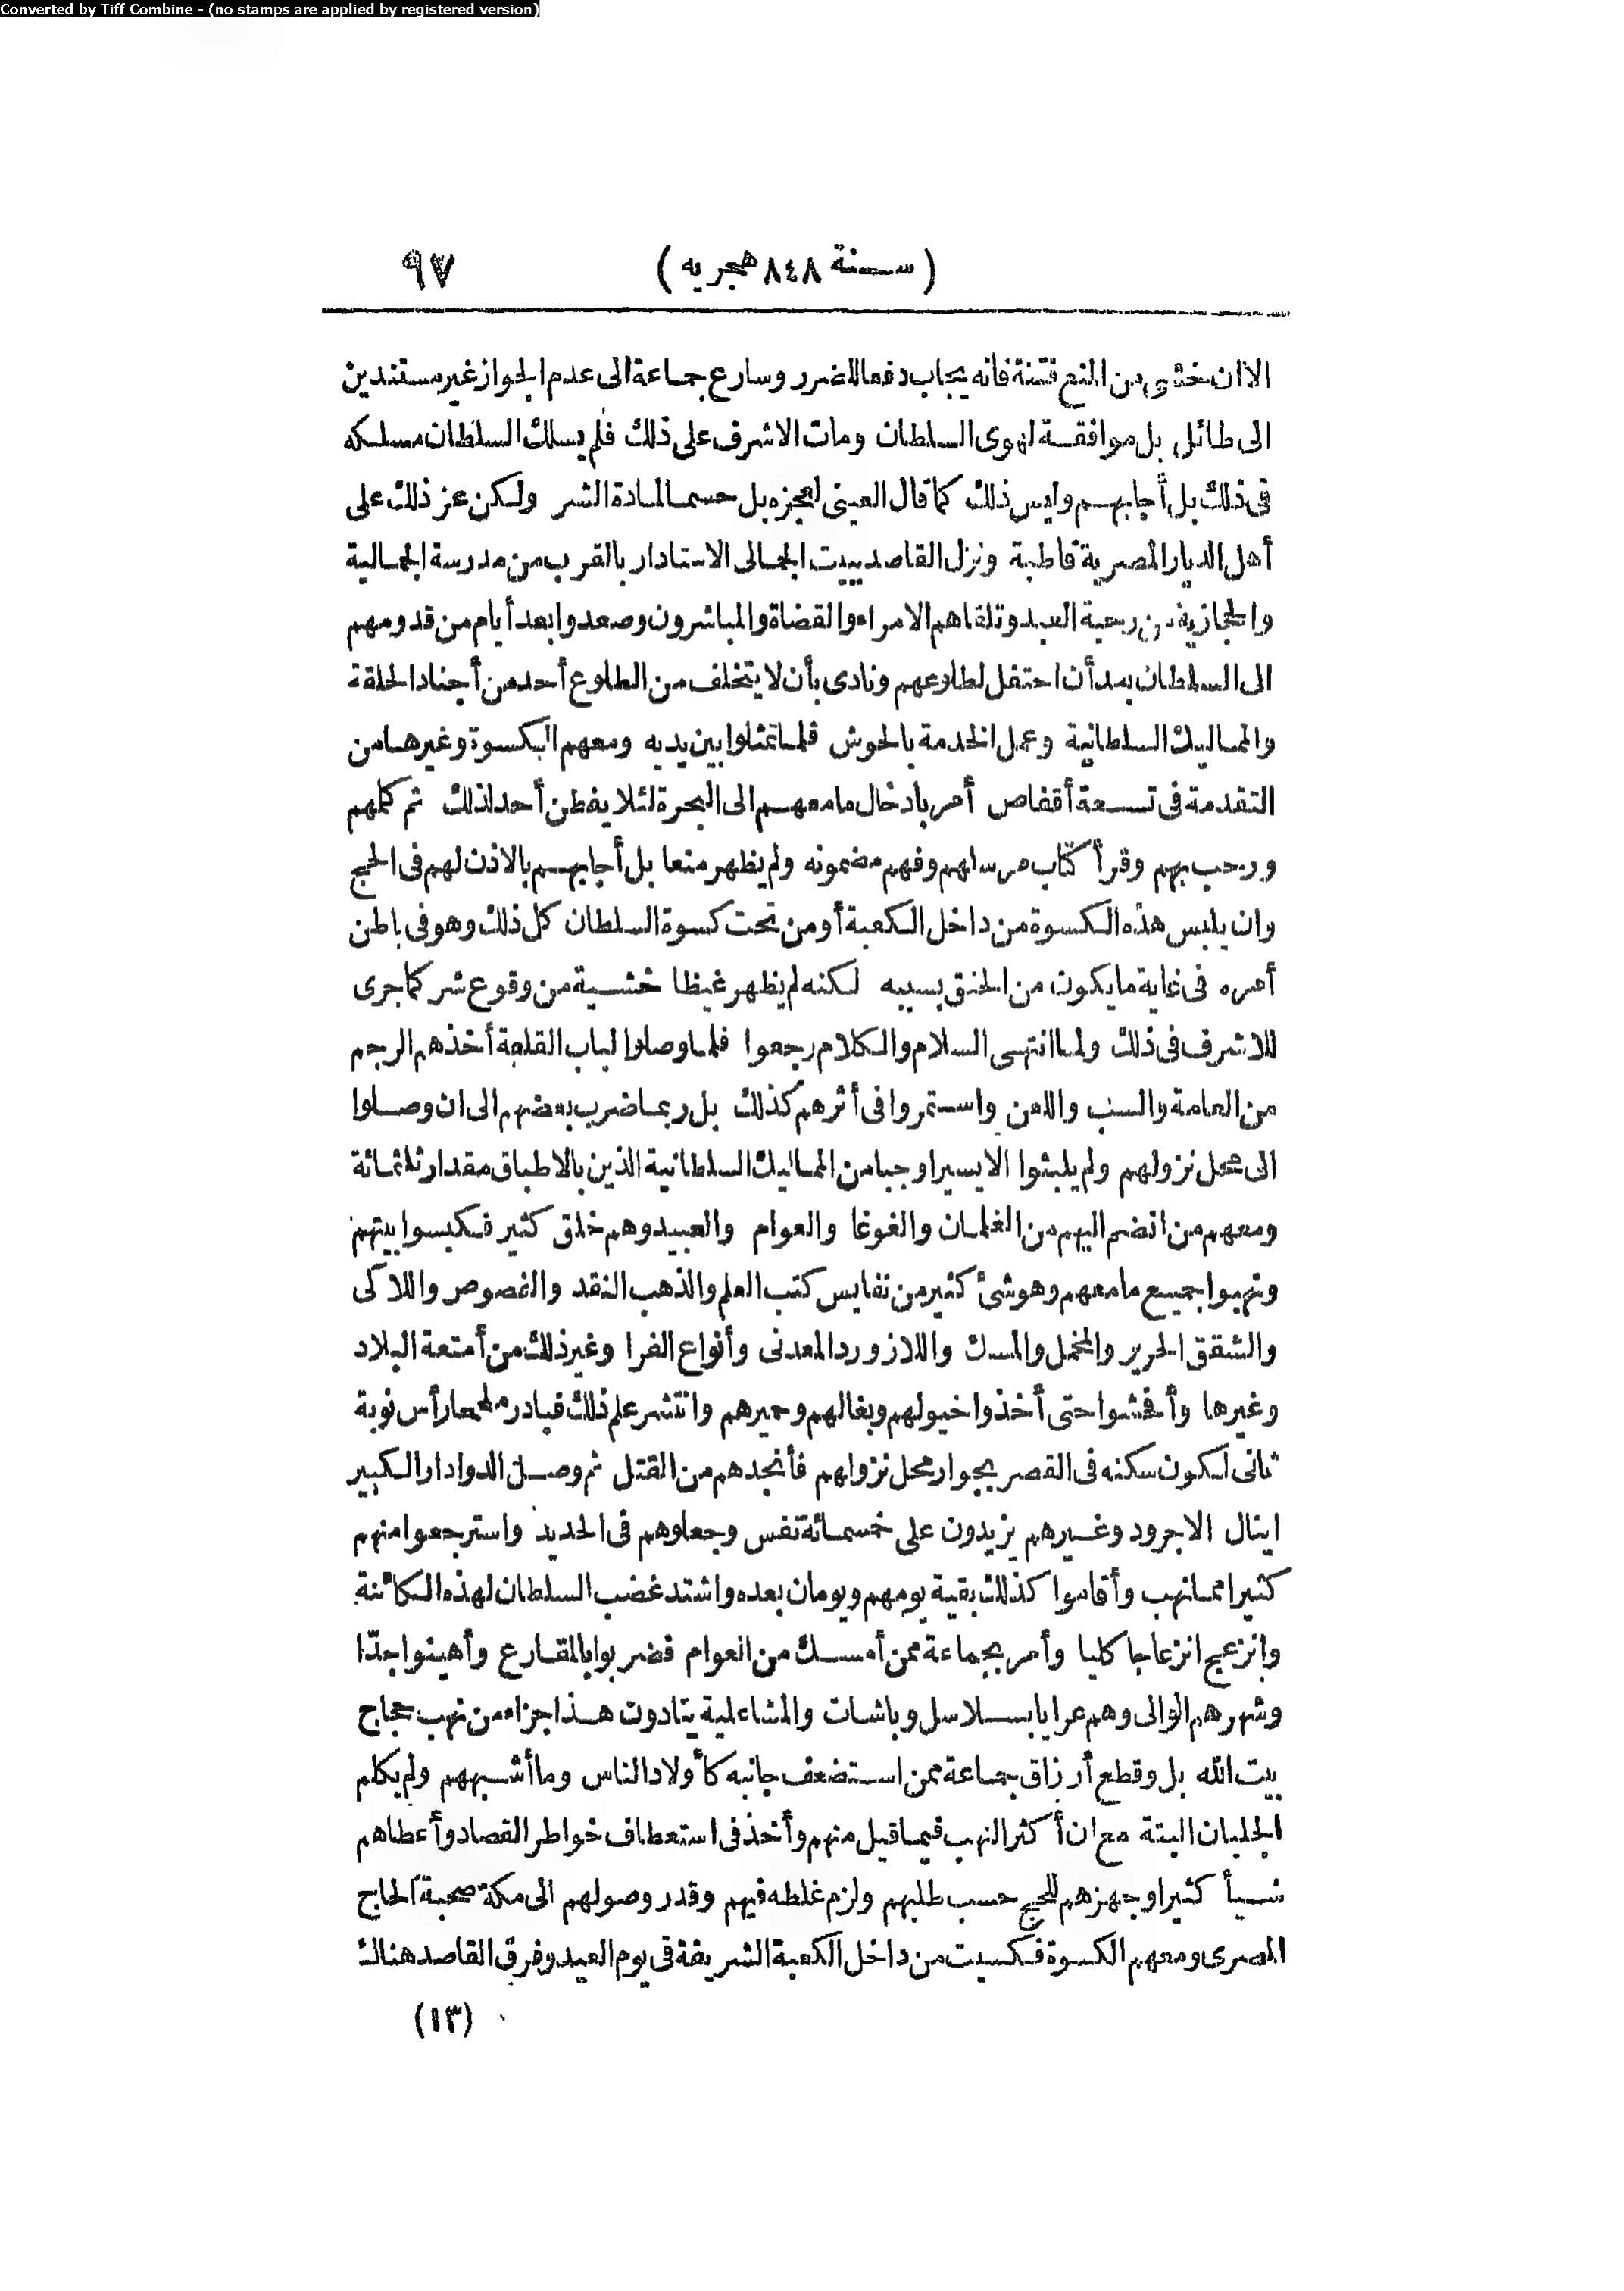 Converted by Tiff Combine - (no stamps are applied by registered version)
(سنة ٨٤٨ هجريه) ٩٧
الا ان خشى من المنع فتنة فانه يجاب دفعا للضرر وسارع جماعة الى عدم الجواز غير مستندين
الى طائل بل موافقة لهوى السلطان ومات الاشرف على ذلك فلم يسلك السلطان مسلكه
فى ذلك بل أجابهم وليس ذلك كما قال العينى لعجزه بل حسما لمادة الشر ولكن عز ذلك على
أهل الديار المصرية قاطبة ونزل القاصد ببيت الجمالى الاستادار بالقرب من مدرسة الجمالية
والحجازية من رحبة العيد وتلقاهم الامراء والقضاة والمباشرون وصعدوا بعد أيام من قدومهم
الى السلطان بعد أن احتفل لطلوعهم ونادى بأن لا يتخلف من الطلوع أحد من أجناد الحلقة
والمماليك السلطانية وعمل الخدمة بالحوش فلما تمثلوا بين يديه ومعهم الكسوة وغيرها من
التقدمة فى تسعة أقفاص أمر بادخال ما معهم الى البحرة لئلا يفطن أحد لذلك ثم كلمهم
ورحب بهم وقرأ كتاب مرسلهم وفهم مضمونه ولم يظهر منعا بل أجابهم بالاذن لهم فى الحج
وان يلبس هذه الكسوة من داخل الكعبة أو من تحت كسوة السلطان كل ذلك وهو فى باطن
أمره فى غاية ما يكون من الحنق بسببه لكنه لم يظهر غيظا خشية من وقوع شر كما جرى
للاشرف فى ذلك ولما انتهى السلام والكلام رجعوا فلما وصلوا لباب القلعة أخذهم الرجم
من العامة والسب واللعن واستمروا فى أثرهم كذلك بل ربما ضرب بعضهم الى ان وصلوا
الى محل نزولهم ولم يلبثوا الا يسيرا وجبا من المماليك السلطانية الذين بالاطباق مقدار ثلثمائة
ومعهم من انضم اليهم من الغلمان والغوغا والعوام والعبيد وهم خلق كثير فكبسوا بيتهم
ونهبوا جميع ما معهم وهو شئ كثير من نفايس كتب العلم والذهب النقد والفصوص واللاكى
والشقق الحرير والمخمل والمسك واللازورد المعدنى وأنواع الفرا وغير ذلك من أمتعة البلاد
وغيرها وأفحشوا حتى أخذوا خيولهم وبغالهم وحميرهم وانتشر علم ذلك فبادر رأس نوبة
ثانى لكون سكنه فى القصر بجوار محل نزولهم فأنجدهم من القتل ثم وصل الدوادار الكبير
اينال الاجرود وغيرهم يزيدون على خمسمائة نفس وجعلوهم فى الحديد واسترجعوا منهم
كثيرا مما نهب وأقاموا كذلك بقية يومهم ويومان بعده واشتد غضب السلطان لهذه الكائنة
وانزعج انزعاجا كليا وأمر بجماعة ممن أمسك من العوام فضربوا بالمقارع وأهينوا جدّا
وشهرهم الوالى وهم عرايا بسلاسل وباشات والمشاعلية ينادون هذا جزاء من نهب حجاج
بيت الله بل وقطع أرزاق جماعة ممن استضعف جانبه كأولاد الناس وما أشبههم ولم يكلم
الجلبان البتة مع ان أكثر النهب فيما قيل منهم وأخذ فى استعطاف خواطر القصاد وأعطاهم
شيأ كثيرا وجهزهم للحج حسب طلبهم ولزم غلطه فيهم وقدر وصولهم الى مكة صحبة الحاج
المصرى ومعهم الكسوة فكسيت من داخل الكعبة الشريفة فى يوم العيد وفرق القاصد هناك
(١٣)